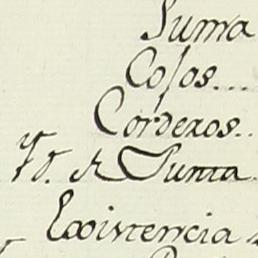 Suma
Cojos...
Corderos..
Yd. de Punta
Existencia